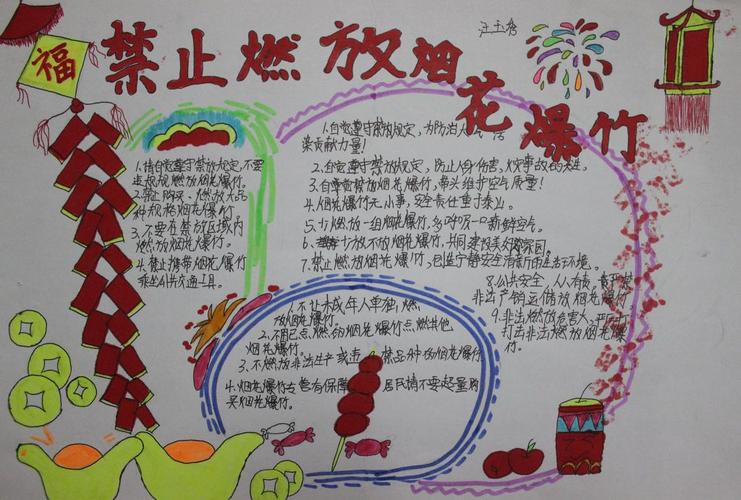 福
禁止燃放烟
花爆竹
汪玉秀
1.请自觉遵守禁放规定,不要
违规燃放烟花爆竹。
2.禁止购买、燃放大品
种规格烟花爆竹。
3.不要在禁放区域内
燃放烟花爆竹。
4.禁止携带烟花爆竹
乘坐公共交通工具。
1.自觉遵守禁放规定,为防治大气污
染贡献力量!
2.自觉遵守禁放规定,防止人身伤害,火灾事故的发生。
3.自觉禁放烟花爆竹,带头维护空气质量!
4.烟花爆竹无小事,安全责任重于泰山。
5.少燃放一组烟花爆竹,多呼吸一口新鲜空气。
6.少放不放烟花爆竹,共同建设美好家园。
7.禁止燃放烟花爆竹,
8.公共安全,人人有责,
非法产销运储放烟花爆竹
9.非法燃放危害大,严厉
打击非法燃放烟花爆
竹。
1.不让未成年人单独燃
放烟花爆竹。
2.不用已点燃的烟花爆竹点燃其他
烟花爆竹。
3.不燃放非法生产或
品种的烟花爆竹
4.烟花爆竹专营有保障
居民请不要超量购
买烟花爆竹。